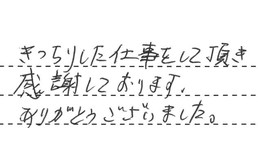 きっちりした仕事をして頂き
感謝しております。
ありがとうございました。